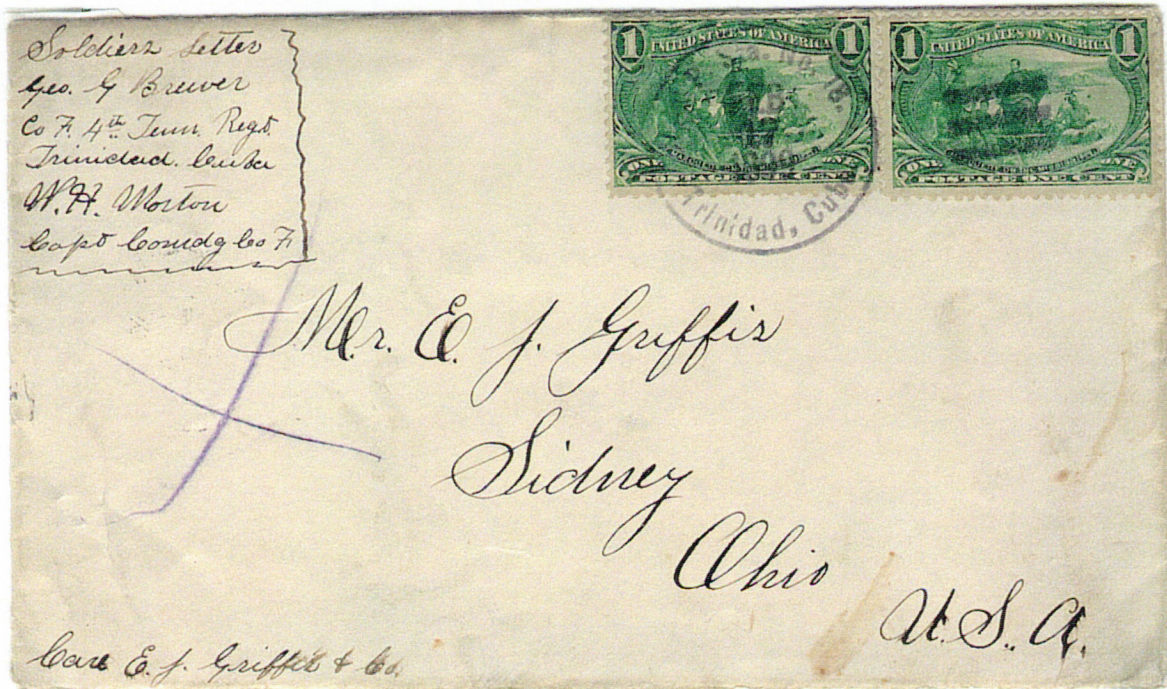 Soldiers Letter
Geo. G Brewer
Co F. 4th Tenn. Regt.
Trinidad. Cuba
W. H. Morton
Capt Comdg Co F.
1 UNITED STATES OF AMERICA 1
ONE ONE
POSTAGE ONE CENT
1 UNITED STATES OF AMERICA 1
ONE ONE
POSTAGE ONE CENT
Sta. No.
Trinidad, Cuba
Mr. E. J. Griffis
Sidney
Ohio
U.S.A.
Care E. J. Griffis & Co.